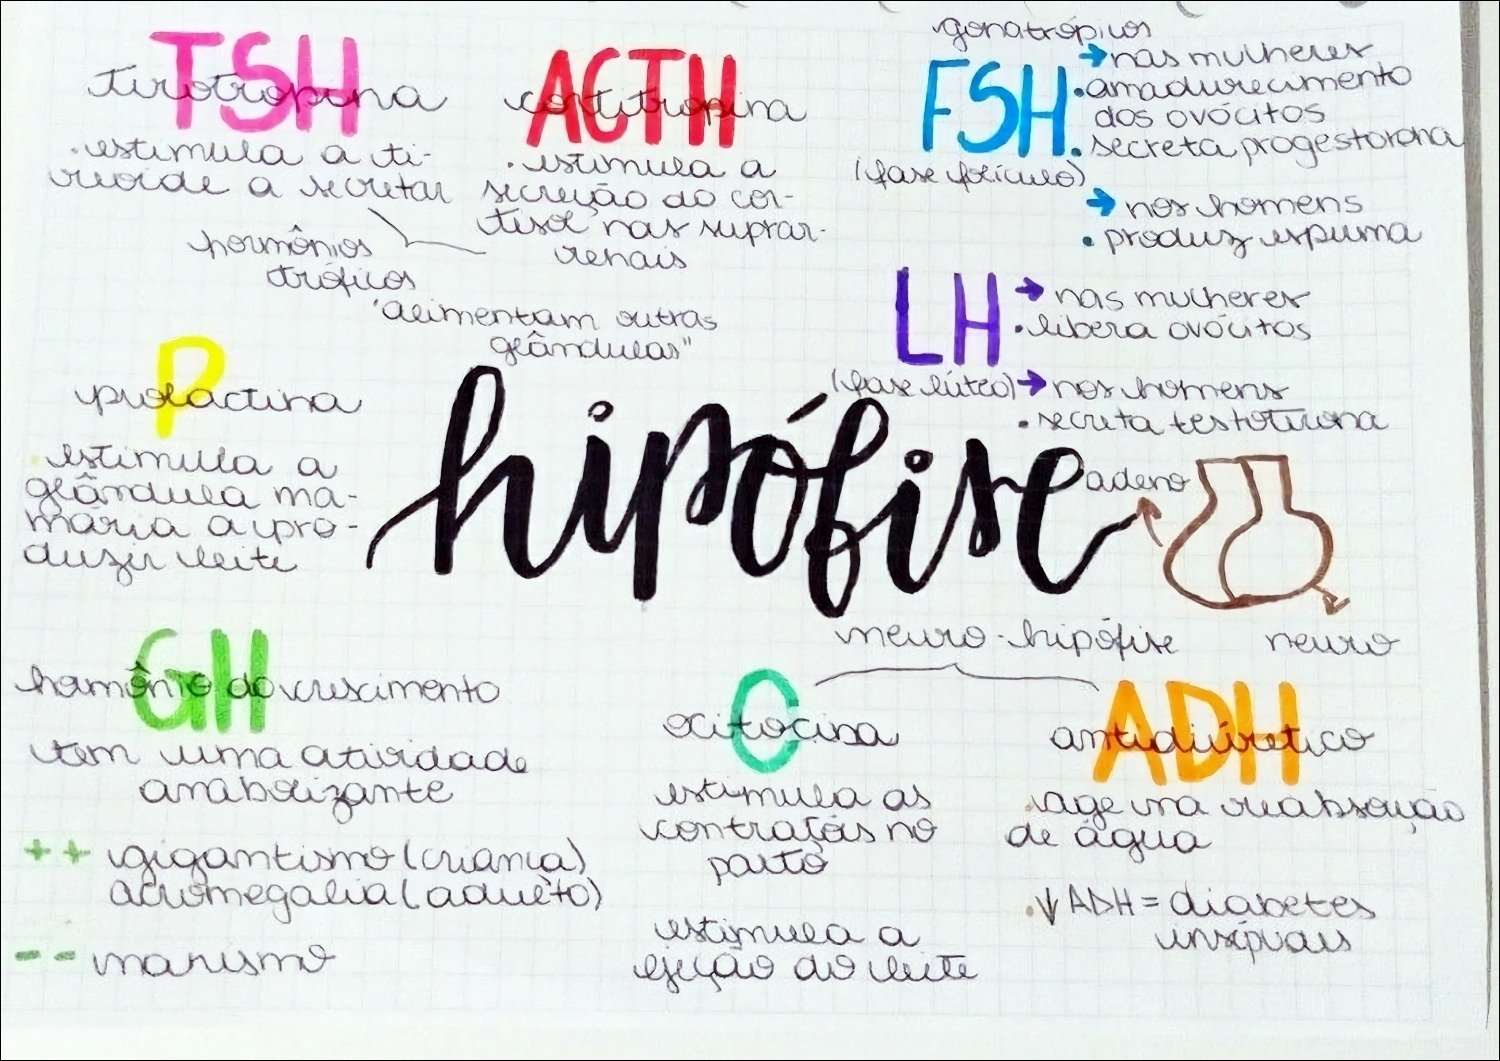 TSH
tirotropina
• estimula a ti-
reoide a secretar
hormônios
tróficos
"alimentam outras
glândulas"
ACTH
cortitropina
• estimula a
secreção do cor-
tisol nas suprar-
renais
gonatrópicos
FSH
(fase folículo)
→ nas mulheres
• amadurecimento
dos ovócitos
• secreta progesterona
→ nos homens
• produz espuma
LH
(fase lúteo)
→ nas mulheres
• libera ovócitos
→ nos homens
• secreta testoterona
P
prolactina
• estimula a
glândula ma-
mária a pro-
duzir leite
hipófise
adeno
neuro
GH
hormônio do crescimento
tem uma atividade
anabolizante
++ gigantismo (criança)
acromegalia (adulto)
-- nanismo
neuro-hipófise
C
ocitocina
estimula as
contrações no
parto
estimula a
ejeção do leite
ADH
antidiúretico
• age na reabsorção
de água
• ↓ ADH = diabetes